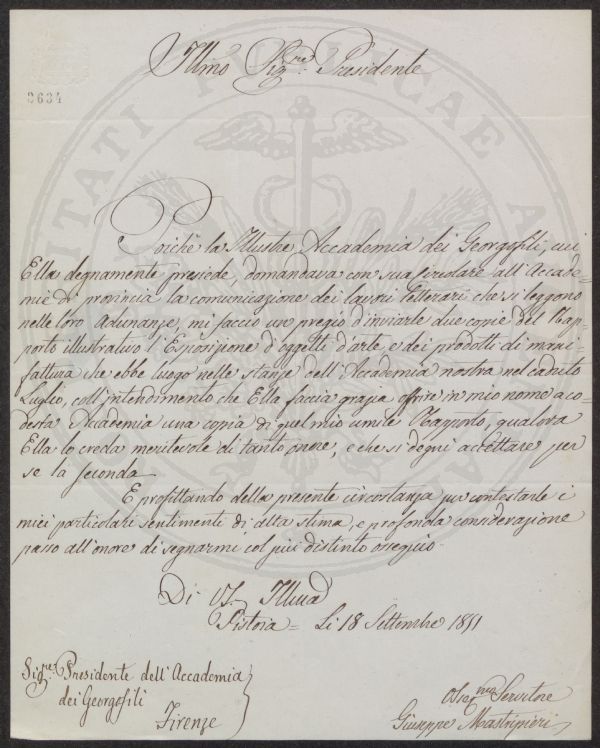 Illmo Sig.re Presidente
2634
Poichè la Illustre Accademia dei Georgofili, cui
Ella degnamente presiede, domandava con sua circolare all'Accade=
mie di provincia la comunicazione dei lavori letterari che si leggono
nelle loro Adunanze, mi faccio un pregio d'inviarle due copie del Rap=
porto illustrativo l'Esposizione d'oggetti d'arte e dei prodotti di mani
fattura che ebbe luogo nelle stanze dell'Accademia nostra nel caduto
Luglio, coll'intendimento che Ella faccia grazia offrire in mio nome a co=
desta Accademia una copia di quel mio umile Rapporto, qualora
Ella lo creda meritevole di tanto onore, e che si degni accettare per
se la seconda
E profittando della presente circostanza per contestarle i
miei particolari sentimenti di alta stima, e profonda considerazione
passo all'onore di segnarmi col più distinto ossequio.
Di VS. Illma
Pistoia = Li 18 Settembre 1851
Sig.re Presidente dell'Accademia
dei Georgofili
Firenze
Servitore
Giuseppe